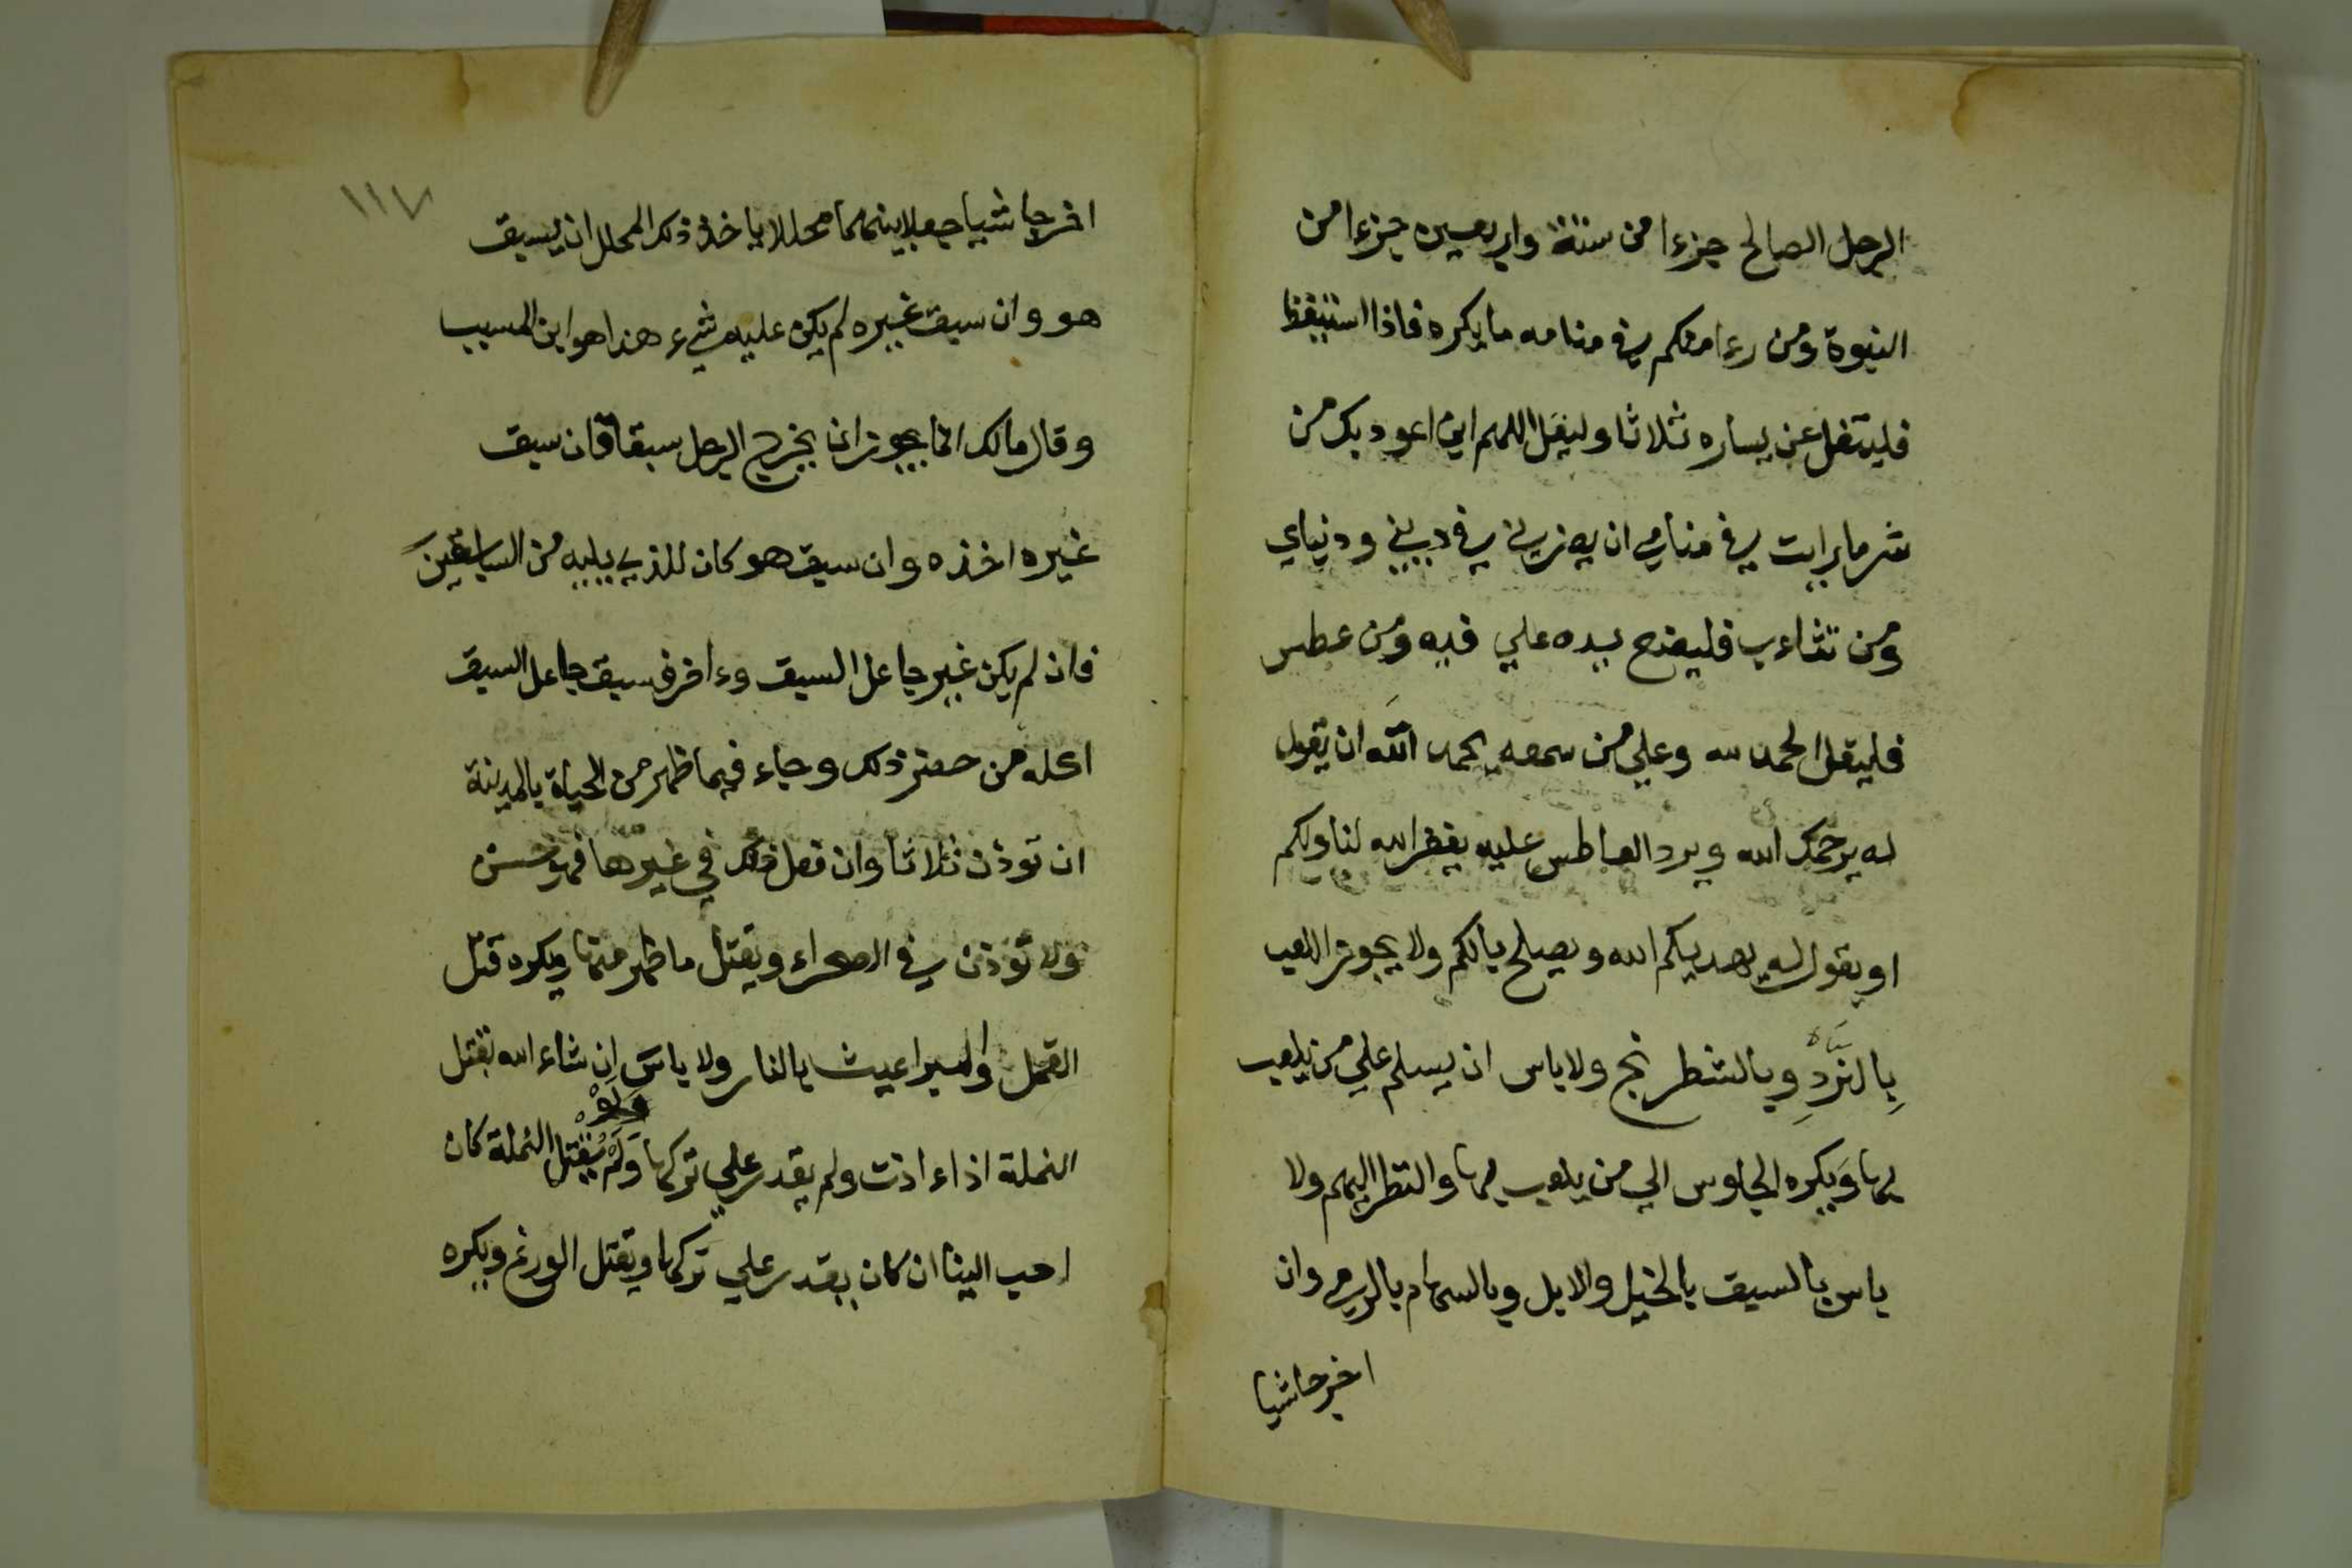 الرجل الصالح جزءا من ستة واربعين جزءا من
النبوة ومن رءا منكم في منامه ما يكره فاذا استيقظ
فليتفل عن يساره ثلاثا وليقل اللهم اني اعود بك من
شر ما رايت في منامي ان يضرني في ديني ودنياي
ومن تثاءب فليضع يده علي فيه ومن عطس
فليقل الحمد لله وعلي من سمعه يحمد الله ان يقول
له يرحمك الله ويرد العاطس عليه يغفر الله لنا ولكم
او يقول له يهديكم الله ويصلح بالكم ولا يجوز اللعب
بِالنَّرْدِ وبالشطرنج ولا باس ان يسلم علي من يلعب
بها ويكره الجلوس الي من يلعب بها والنظر اليهم ولا
باس بالسبق بالخيل والابل وبالسهام بالرمي وان
اخرجا شيا
١١٧
اخرجا شيا جعلا بينهما محللا ياخذ ذلك المحلل ان يسبق
هو وان سبق غيره لم يكن عليه شيء هذا هو ابن المسيب
وقال مالك انما يجوز ان يخرج الرجل سبقا فان سبق
غيره اخذه وان سبق هو كان للذي يليه من السابقين
فان لم يكن غير جاعل السبق وءاخر فسبق جاعل السبق
اكله من حضر ذلك وجاء فيما ظهر من الحياة بالمدينة
ان توذن ثلاثا وان فعل ذلك في غيرها فهو حسن
ولا تؤذن في الصحراء ويقتل ما ظهر منها ويكره قتل
القمل والبراغيث بالنار ولا باسَ ان شاء الله بقتل
النملة اذاءاذت ولم يقدر علي تركها وَلَوْ لَمْ يقتل النملة كان
احب الينا ان كان يقدر علي تركها ويقتل الوزغ ويكره